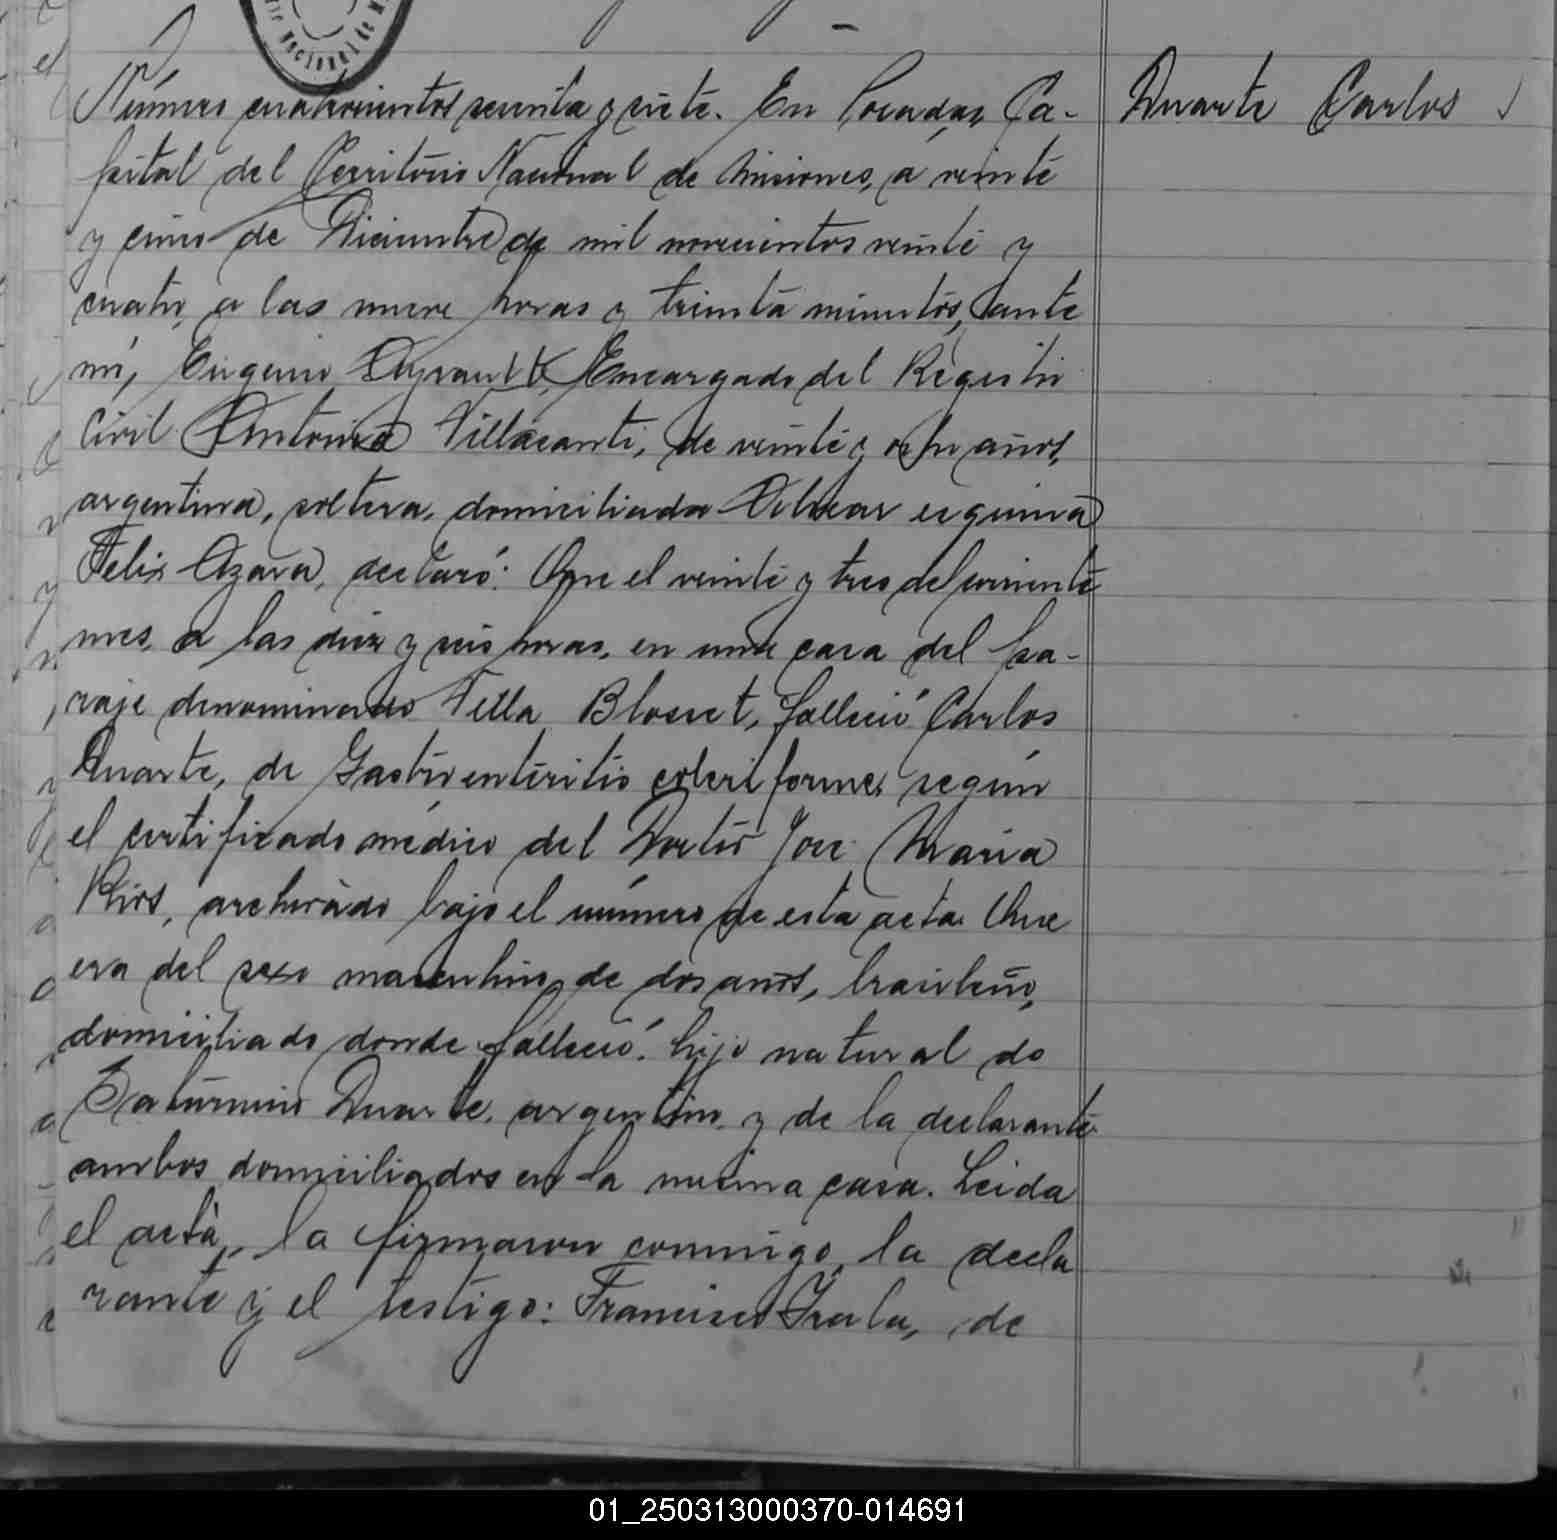 Duarte Carlos
Número cuatrocientos sesenta y siete. En Posadas, Ca-
pital del Territorio Nacional de Misiones, a veinte
y cinco de Diciembre de mil novecientos veinte y
cuatro, a las nueve horas y treinta minutos, ante
mí, Eugenio Encargado del Registro
Civil Antonia Villacanti, de veinte y ocho años,
argentina, soltera, domiciliada Alvear esquina
Felix Azara, declaró: Que el veinte y tres del corriente
mes, a las diez y seis horas, en una casa del pa-
raje denominado Villa Blosset, falleció Carlos
Duarte, de Gastroenteritis coleriforme, según
el certificado médico del Doctor José Maria
Rios, archivado bajo el número de esta acta. Que
era del sexo masculino, de dos años, brasileño,
domiciliado donde falleció. hijo natural de
Saturnino Duarte, argentino, y de la declarante
ambos domiciliados en la misma casa. Leida
el acta, la firmaron conmigo, la decla
rante y el testigo: Francisco Irala, de
01_250313000370-014691